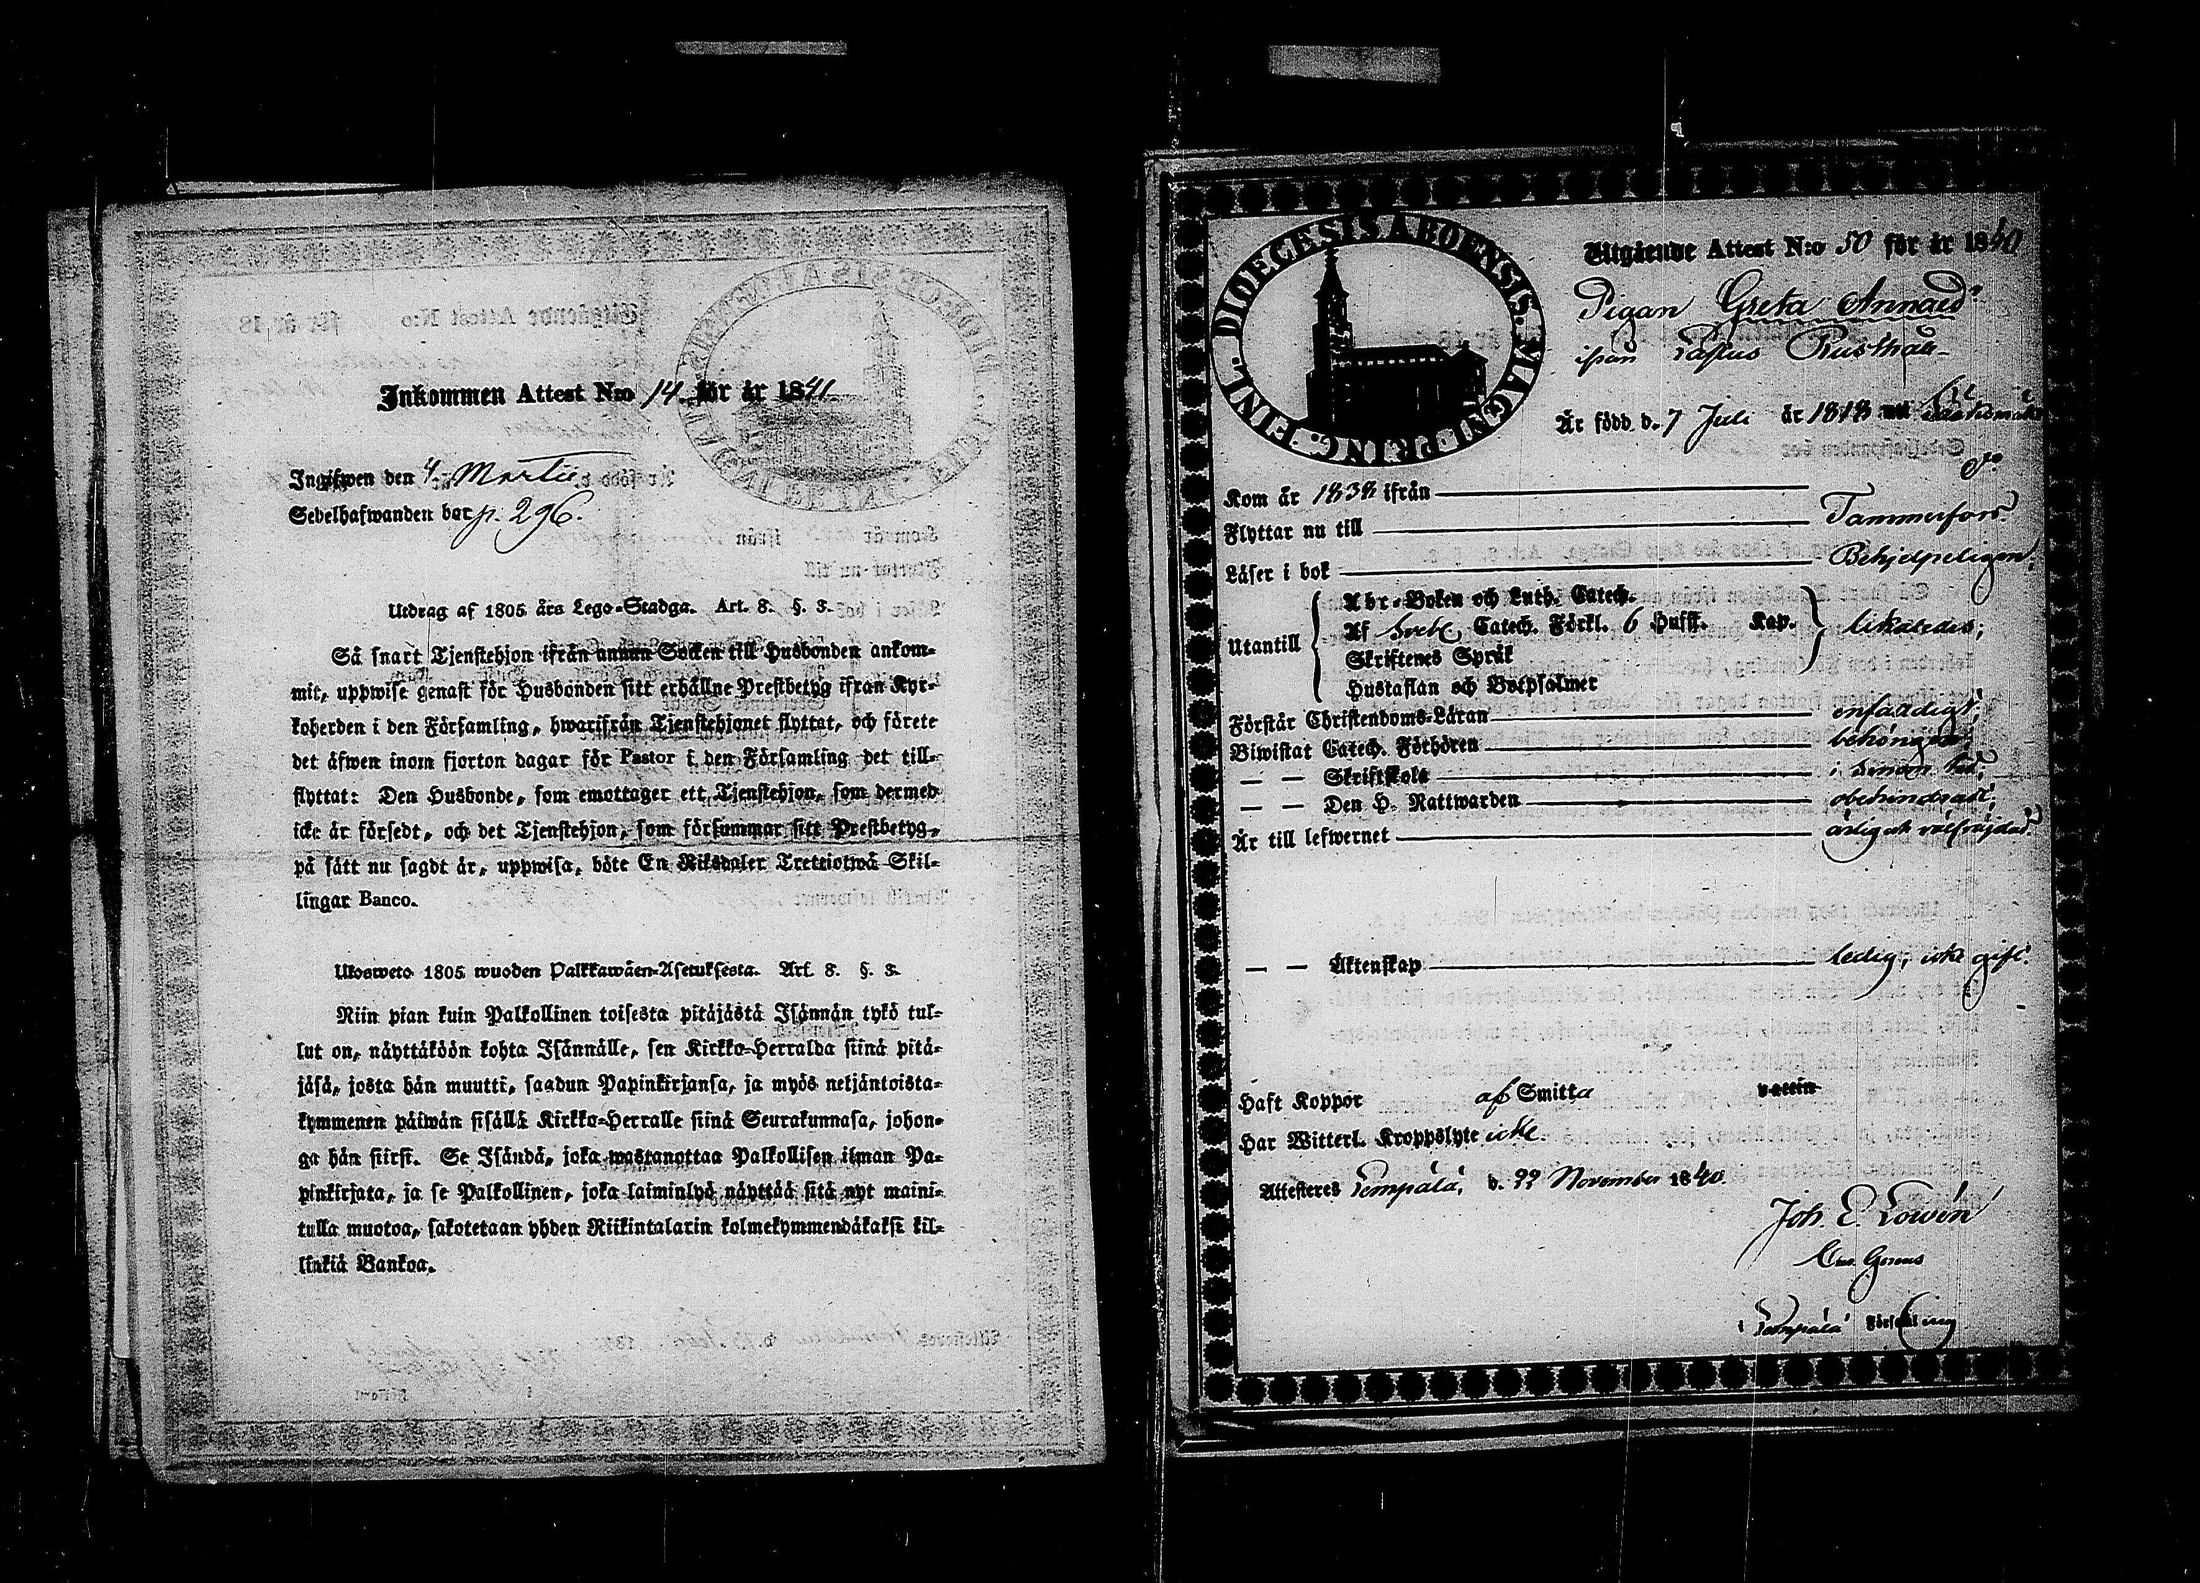 Inkommen Attest N:o 14. för år 1841.
Ingifwen den 4. Martii
Sedelhafwanden bor p. 296.
Utdrag af 1805 års Lego-Stadga. Art. 8. §. 3.
Så snart Tjenstehjon ifrån annan Socken till Husbonden ankom-
mit, uppwise genast för Husbonden sitt erhållne Prestbetyg ifrån Kyr-
koherden i den Församling, hwarifrån Tjenstehjonet flyttat, och förete
det äfwen inom fjorton dagar för Pastor i den Församling det till-
flyttat: Den Husbonde, som emottager ett Tjenstehjon, som dermed
icke är försedt, och det Tjenstehjon, som försummar sitt Prestbetyg,
på sätt nu sagdt är, uppwisa, böte En Riksdaler Trettiotwå Skil-
lingar Banco.
Ulosweto 1805 wuoden Palkkawäen-Asetuksesta. Art. 8. §. 3.
Niin pian kuin Palkollinen toisesta pitäjästä Isännän tykö tul-
lut on, näyttäköön kohta Isännälle, sen Kirkko-Herralda siinä pitä-
jäsä, josta hän muutti, saadun Papinkirjansa, ja myös neljäntoista-
kymmenen päiwän sisällä Kirkko-Herralle siinä Seurakunnasa, johon-
ga hän siirsi. Se Isändä, joka wastanottaa Palkollisen ilman Pa-
pinkirjata, ja se Palkollinen, joka laiminlyö näyttää sitä nyt maini-
tulla muotoa, sakotetaan yhden Riikintalarin kolmekymmendäkaksi kil-
linkiä Bankoa.
DIOECESIS ABOENSIS. MAGNI PRING. FINL.
Utgående Attest N:o 50 för år 1840
Pigan Greta Annaed:r
ifrån Rusthåll
Är född d. 7 Juli år 1818 uti
Kom år 1838 ifrån
Flyttar nu till Tammerfors.
Läser i bok Behjelpeligen;
Utantill
Abc-Boken och Luth. Catech.
Af Sveb. Catech. Förkl. 6 Hufst. Kap.
Skriftenes Språk
Hustaflan och Botpsalmer
likaledes;
Förstår Christendoms-Läran enfaldigt;
Biwistat Catech. Förhören behörigen;
— — Skriftskola i sinom tid;
— — Den H. Nattwarden obehindrad;
Är till lefwernet ärlig och välfrejdad.
— — Äktenskap ledig, icke gift.
Haft Koppor af Smitta vaccin
Har Witterl. Kroppslyte icke.
Attesteres Lempälä, d. 22 November 1840.
Joh. E. Lowén
i Lempälä Församling